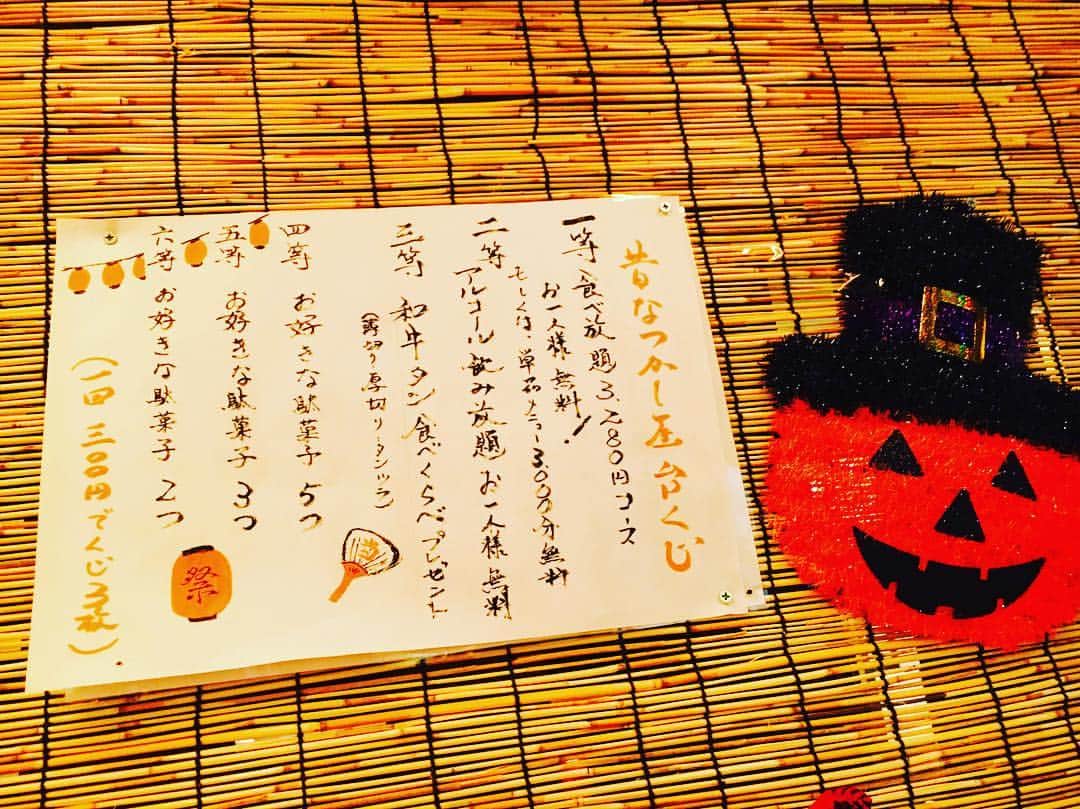 昔なつかし屋台くじ
一等 食べ放題3,280円コース
お一人様無料!
もしくは、単品メニュー3000分無料
二等 アルコール飲み放題 お一人様無料
三等 和牛タン食べくらべプレゼント
(薄切り・厚切り・タンツラ)
四等 お好きな駄菓子 5つ
五等 お好きな駄菓子 3つ
六等 お好きな駄菓子 2つ
(一回 三〇〇円でくじ3枚)
祭